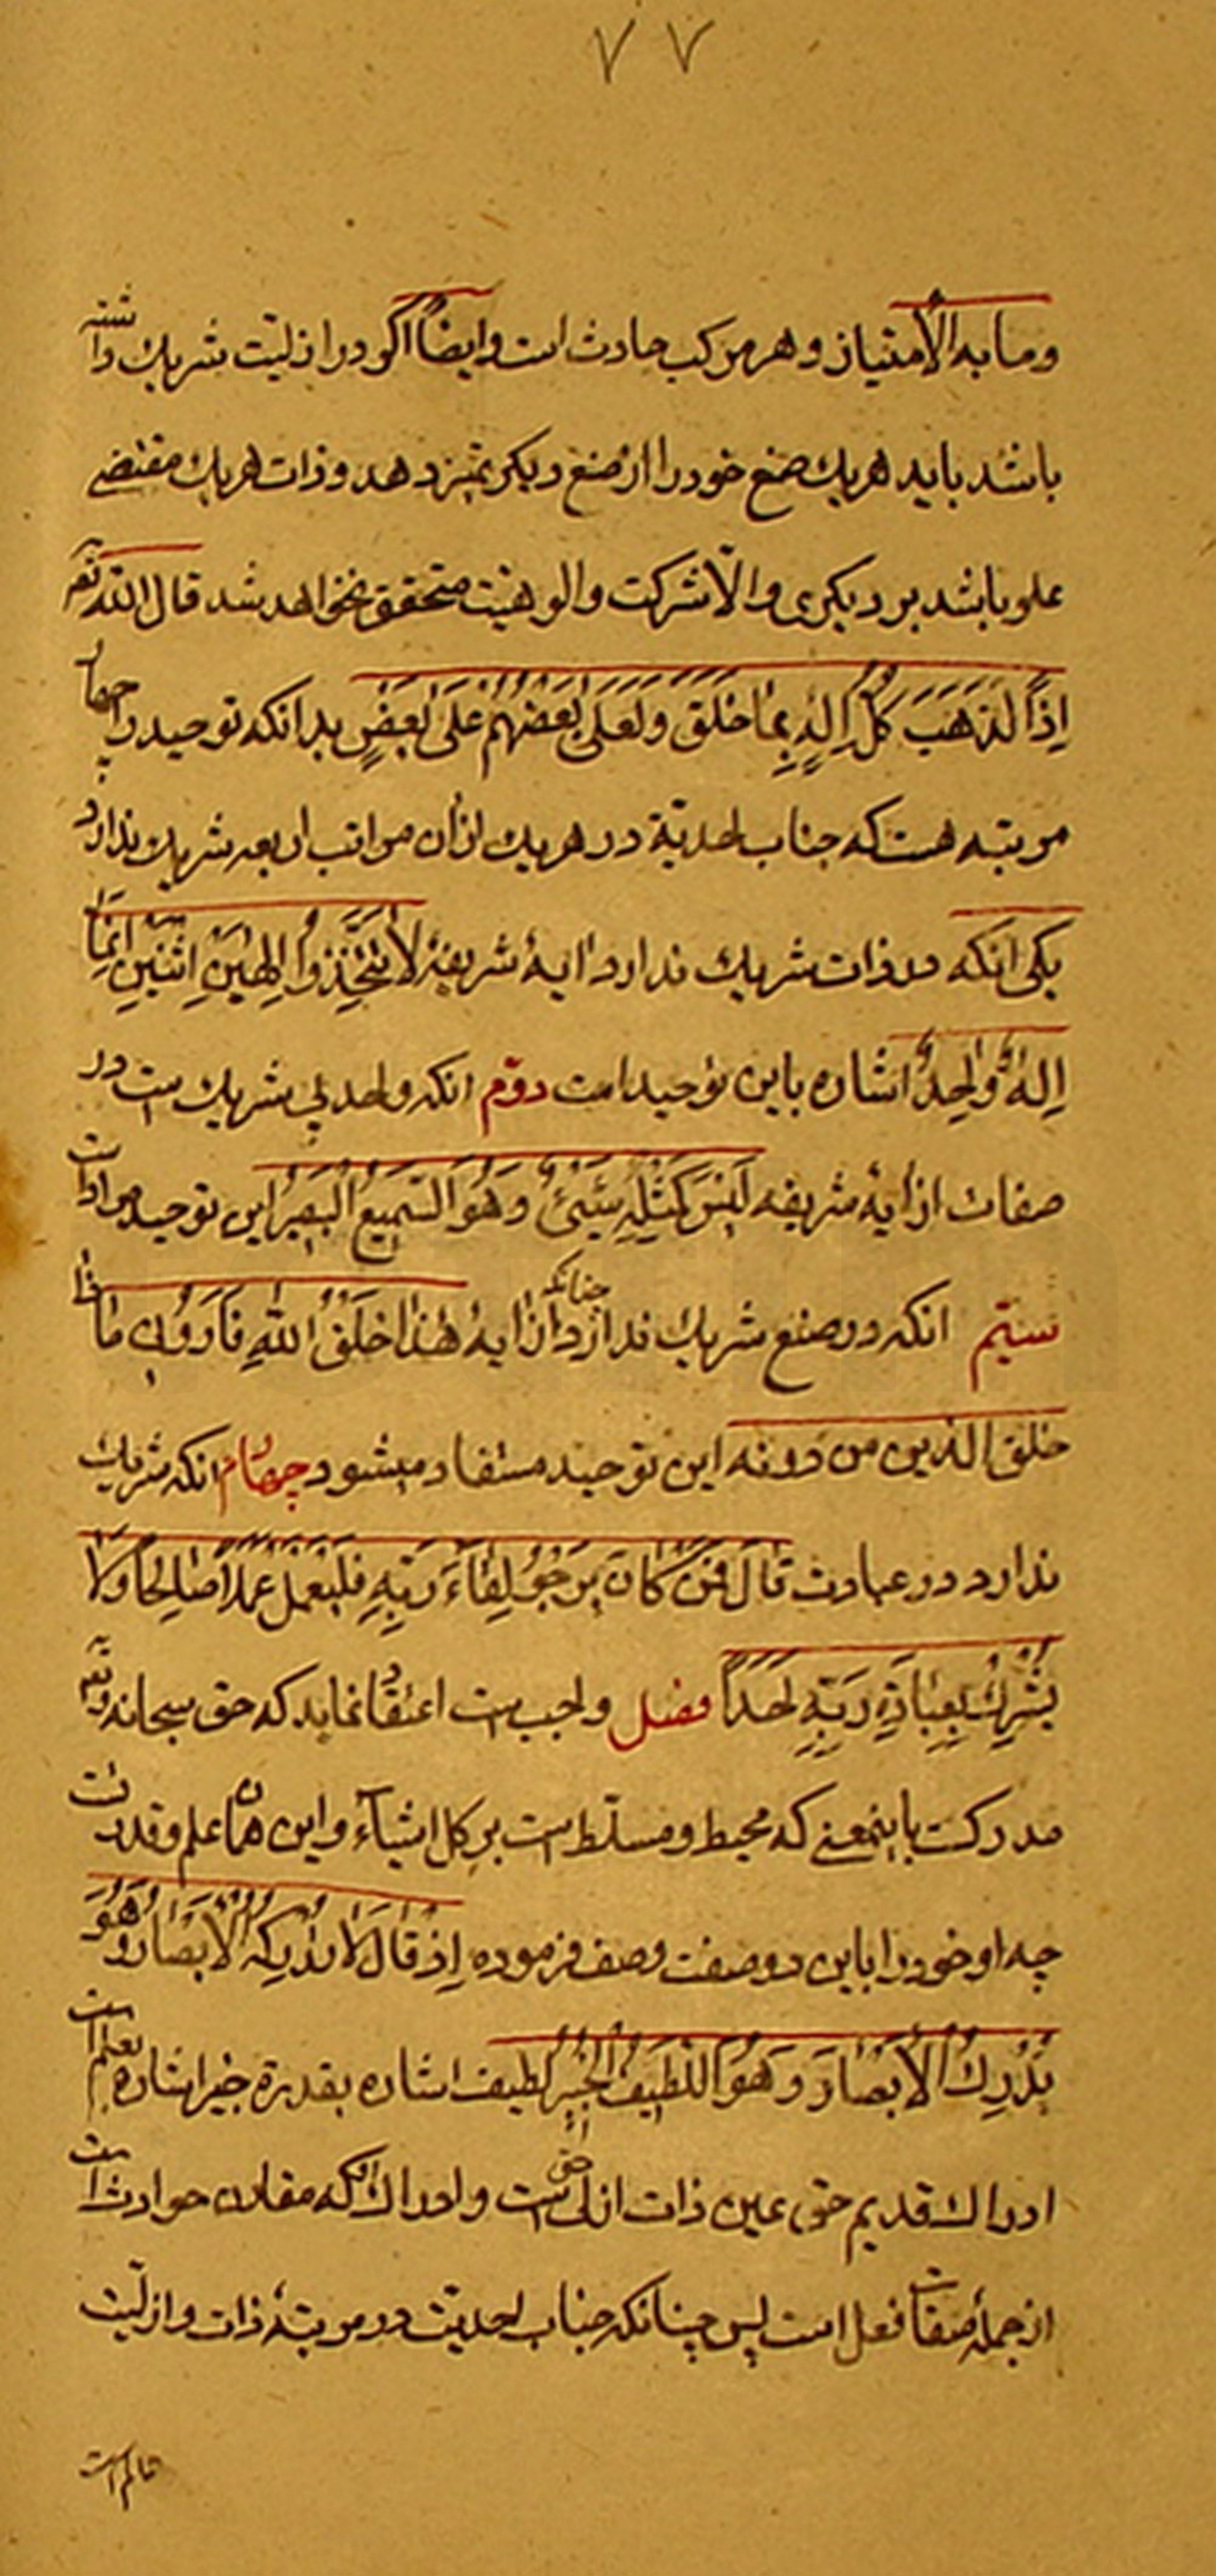 ٧٧
وما به الامتیاز و هر مرکب حادث است وایضاً اگر در ازلیت شریک داشته
باشد باید هر یک صنع خود را از صنع دیکر تمیز دهد و ذات هر یک مقتضی
علو باشد بر دیکری والّا شرکت والوهیت متحقق نخواهد شد قال الله تعم
اِذاً لَذَهَبَ کُلُّ اِلهٍ بِمٰا خَلَقَ وَلَعَلٰی بَعْضُهُمْ عَلٰی بَعْضٍ بدانکه توحید را چهار
مرتبه هست که جناب احدیّة در هر یک از ان مراتب اربعه شریک ندارد
یکی انکه در ذات شریک ندارد ایهٔ شریفهٔ لاٰ تَتَّخِذُوا اِلٰهَیْنِ اِثْنَیْنِ اِنَّمٰا
اِلهٌ وٰاحِدٌ اشاره باین توحید است دوّم انکه واحد بی شریک است در
صفات از ایهٔ شریفه لَیْسَ کَمِثْلِهِ شَیْئٌ وَهُوَ السَّمیعُ الْبَصیٖرُ این توحید مراد است
سیّم انکه در صنع شریک ندارد چنانکه از ایهٔ هٰذٰا خَلْقُ اللهِ فَاَرُونیٖ مٰاذٰا
خلق الذین من دونه این توحید مستفاد میشود چهارم انکه شریک
ندارد در عبادت قٰالَ فَمَنْ کٰانَ یَرْجُو لِقٰاءَ رَبِّهِ فَلْیَعْمَلْ عَمَلاً صٰالِحاً وَلاٰ
یُشْرِكْ بِعِبٰادَةِ رَبِّهِ اَحَداً فصل واجب است اعتقاد نماید که حق سبحانه وتعم
مدرکست باینمعنی که محیط و مسلّط است بر کل اشیآء و این همان علم و قدرت است
چه او خود را باین دو صفت وصف فرموده اِذْ قٰالَ لاٰ تُدْرِکُهُ الْاَبْصٰارُ وَهُوَ
یُدْرِكُ الْاَبْصٰارَ وَهُوَ اللَّطیٖفُ الْخَبیٖرُ لطیف اشاره بقدرة خبیر اشاره بعلم است
ادراك قدیم حق عین ذات ازلی حق است و ادراك انکه مقارن حوادث است
از جملهٔ صفات فعل است پس چنانکه جناب احدیت در مرتبهٔ ذات و ازلیت
عالم است